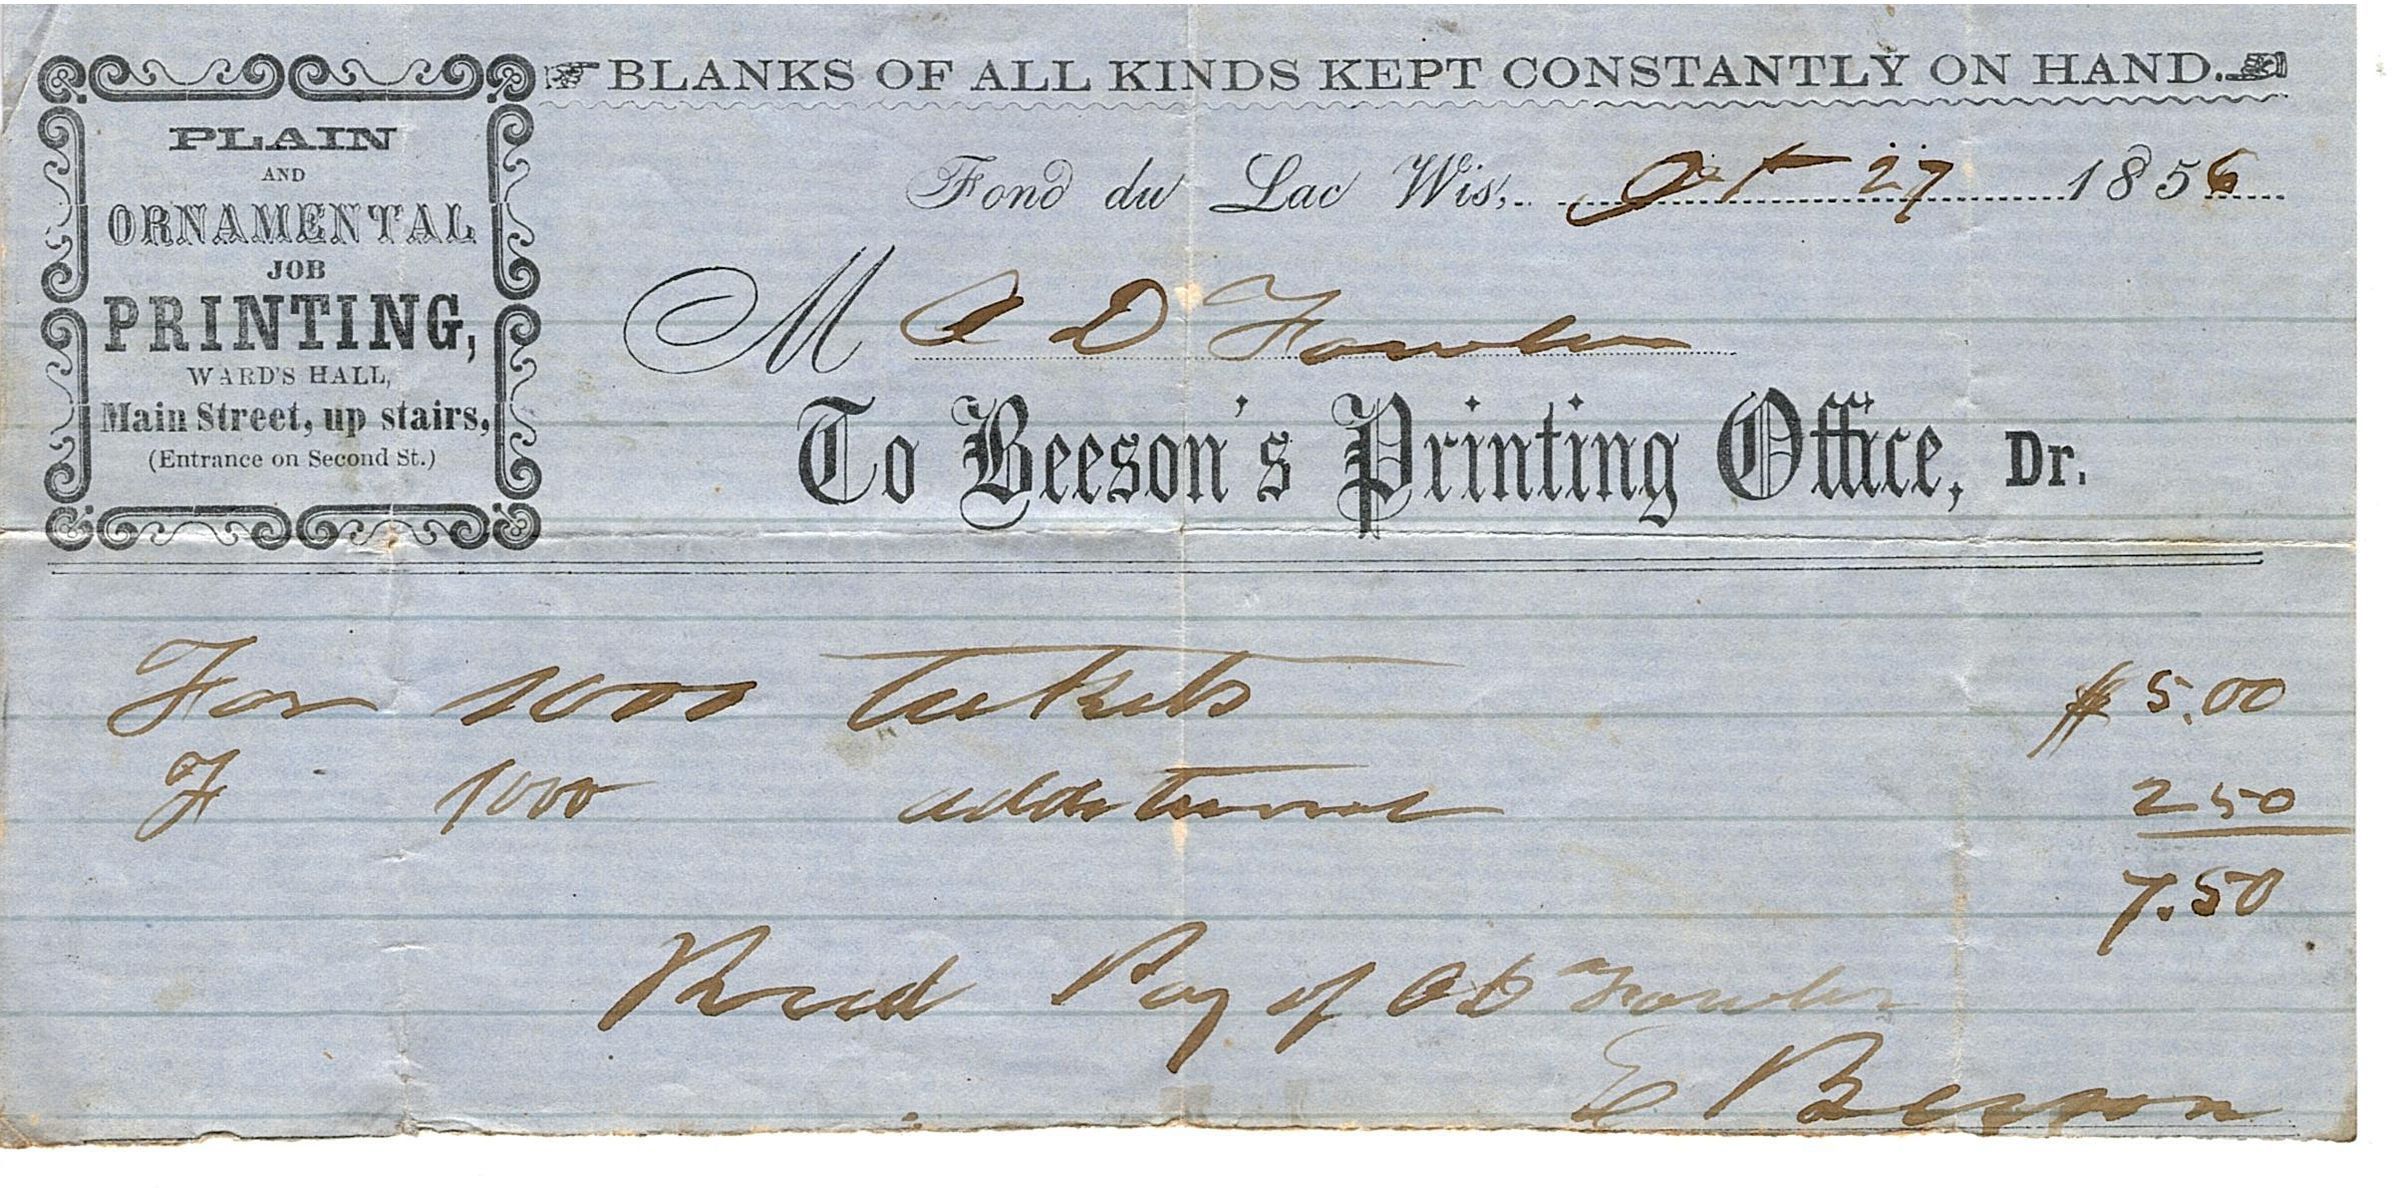 BLANKS OF ALL KINDS KEPT CONSTANTLY ON HAND.
PLAIN
AND
ORNAMENTAL
JOB
PRINTING,
WARD'S HALL,
Main Street, up stairs,
(Entrance on Second St.)
Fond du Lac Wis, Oct 27 1856
M D Fowler
To Beeson's Printing Office, Dr.
For 1000 Tickets $5.00
F 1000 additional 2 50
7.50
Recd Pay of D Fowler
E Beeson